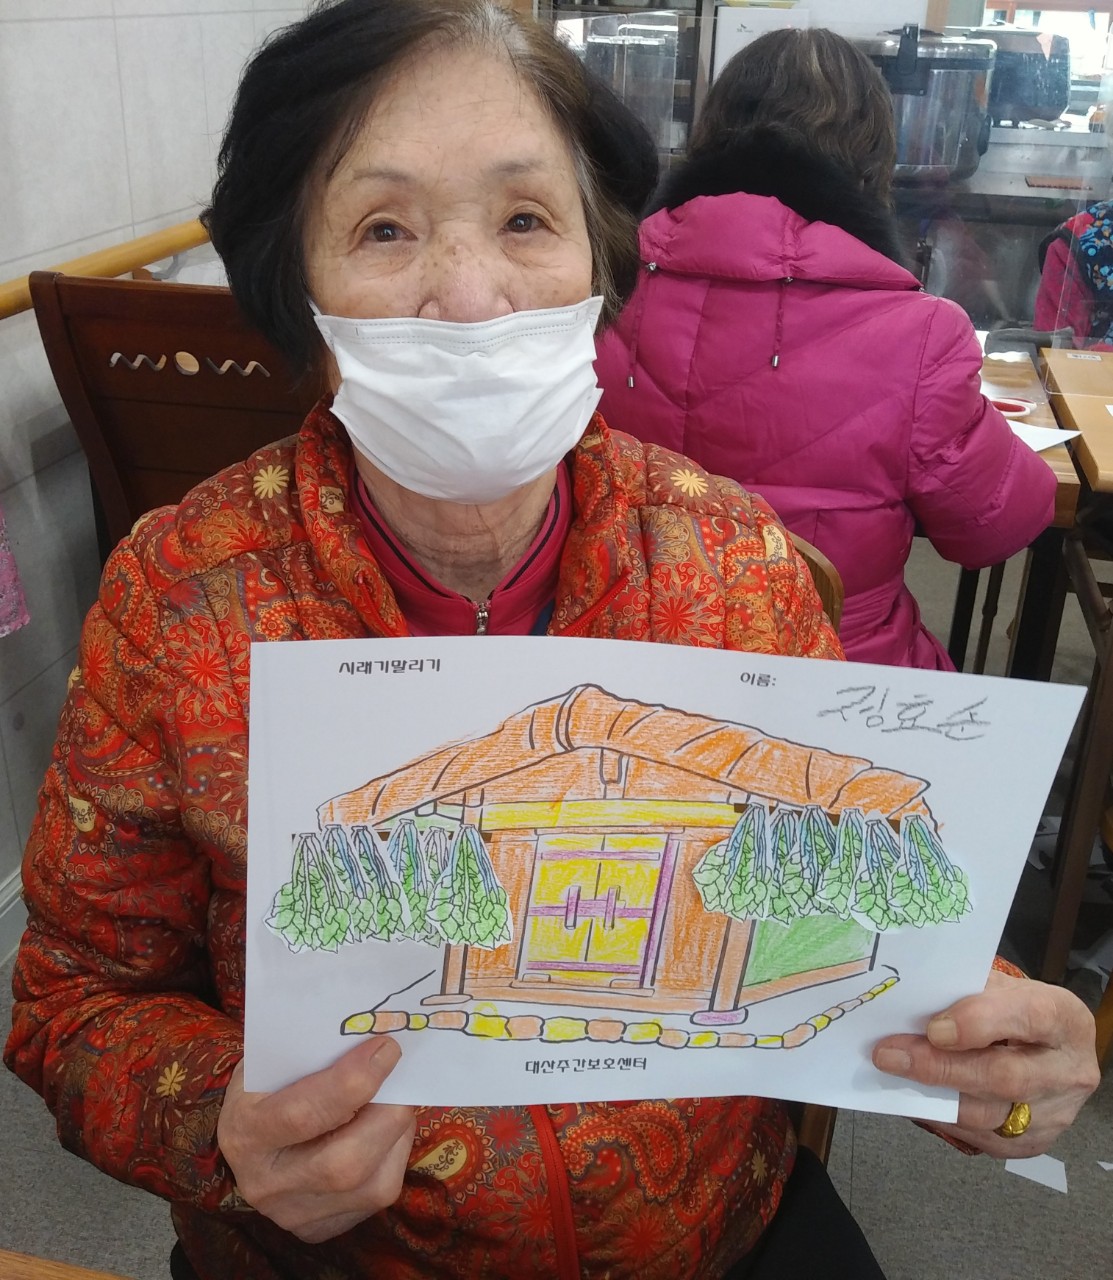 시래기말리기
이름: 김효순
대산주간보호센터
WOW